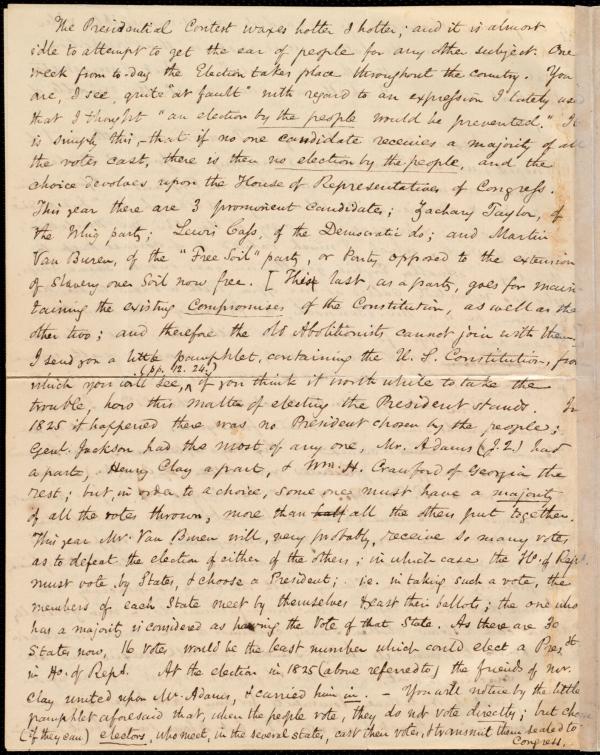 The Presidential Contest waxes hotter & hotter; and it is almost
idle to attempt to get the ear of people for any other subject. One
week from to-day the Election takes place throughout the country. You
are, I see, quite "at fault" with regard to an expression I lately used
that I thought "an election by the people would be prevented." It
is simply this,—that if no one candidate receives a majority of all
the votes cast, there is then no election by the people, and the
choice devolves upon the House of Representatives of Congress.
This year there are 3 prominent candidates; Zachary Taylor, of
the Whig party; Lewis Cass, of the Democratic do; and Martin
Van Buren, of the "Free Soil" party, or Party opposed to the extension
of Slavery over Soil now free. [This last, as a party, goes for main
taining the existing Compromises of the Constitution, as well as the
other two; and therefore the old Abolitionists cannot join with them.
I send you a little pamphlet, containing the U. S. Constitution, from
(pp. 12. 24.)
which you will see, if you think it worth while to take the
trouble, how this matter of electing the President stands. In
1825 it happened there was no President chosen by the people;
Genl. Jackson had the most of any one, Mr. Adams (J. 2.) had
a part, Henry Clay a part, & Wm. H. Crawford of Georgia the
rest; but, in order to a choice, some one must have a majority
of all the votes thrown, more than half all the others put together.
This year Mr. Van Buren will, very probably, receive so many votes
as to defeat the election of either of the others; in which case the Ho. of Reps.
must vote by States, & choose a President; ie. in taking such a vote, the
members of each State meet by themselves & cast their ballots; the one who
has a majority is considered as having the Vote of that State. As there are 30
States now, 16 votes would be the least number which could elect a Prest.
in Ho. of Reps. At the election in 1825 (above referred to) the friends of Mr.
Clay united upon Mr. Adams, & carried him in. — You will notice by the little
pamphlet aforesaid that, when the people vote, they do not vote directly; but choose
(if they can) electors, who meet, in the several states, cast their votes, & transmit them sealed to
Congress.